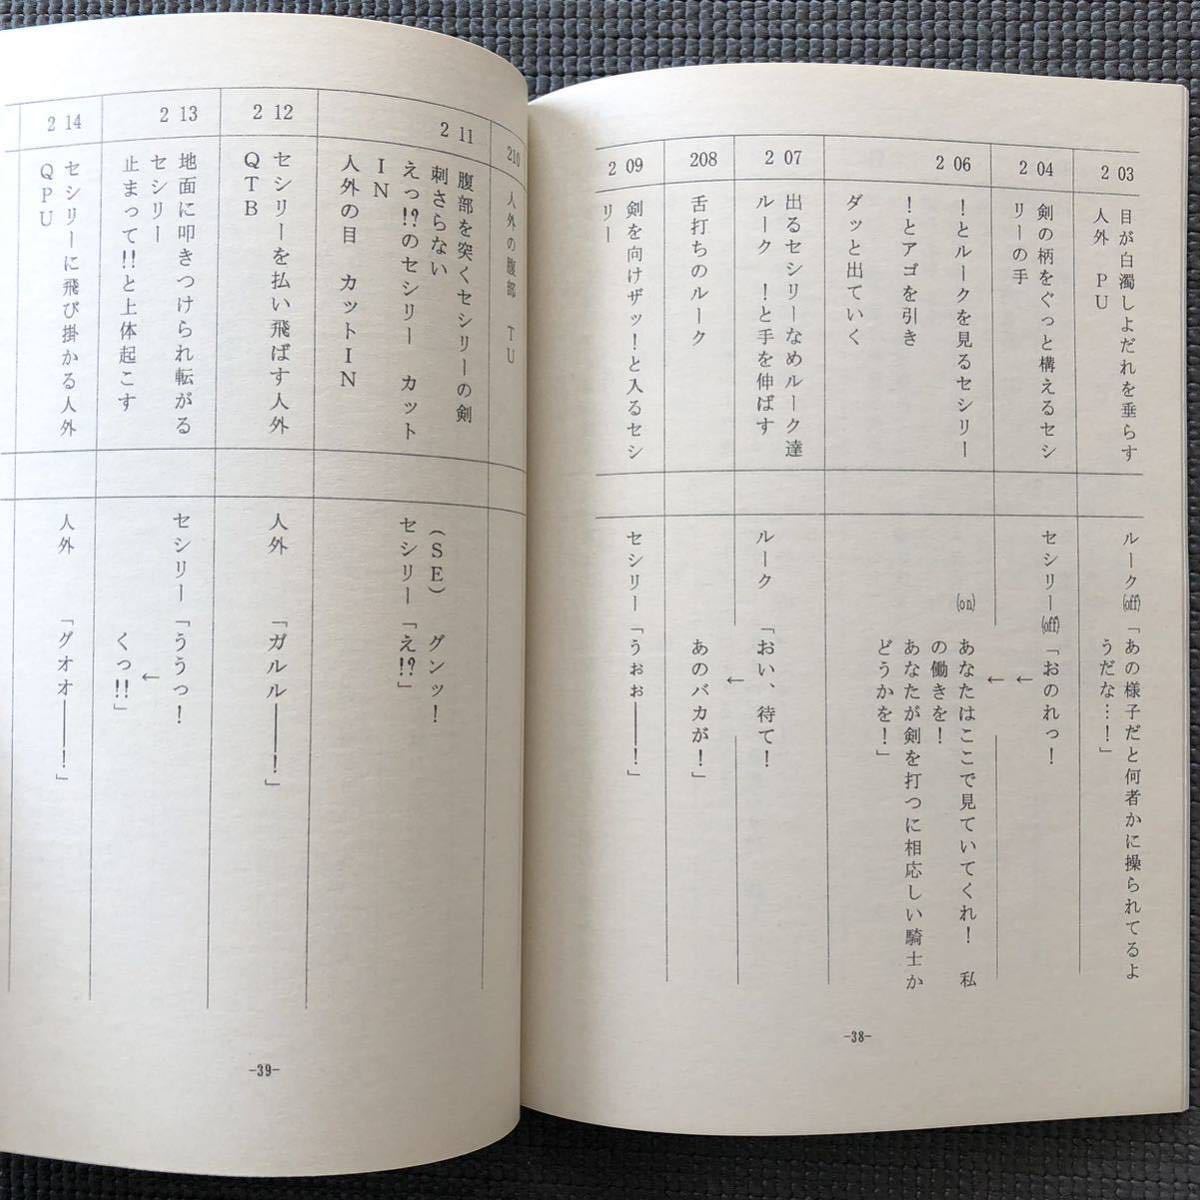 2 03
目が白濁しよだれを垂らす
人外　PU
ルーク(off)「あの様子だと何者かに操られてるよ
うだな…！」
2 04
剣の柄をぐっと構えるセシ
リーの手
セシリー(off)「おのれっ！
←
2 06
！とルークを見るセシリー
！とアゴを引き
ダッと出ていく
←
(on)　あなたはここで見ていてくれ！　私
の働きを！
あなたが剣を打つに相応しい騎士か
どうかを！」
2 07
出るセシリーなめルーク達
ルーク　！と手を伸ばす
ルーク　「おい、待て！
←
208
舌打ちのルーク
あのバカが！」
2 09
剣を向けザッ！と入るセシ
リー
セシリー「うぉぉ――！」
-38-
210
人外の腹部　TU
2 11
腹部を突くセシリーの剣
刺さらない
えっ!?のセシリー　カット
IN
人外の目　カットIN
(SE)　グンッ！
セシリー「え!?」
2 12
セシリーを払い飛ばす人外
QTB
人外　「ガルル――！」
2 13
地面に叩きつけられ転がる
セシリー
止まって!!と上体起こす
セシリー「ううっ！
←
くっ!!」
2 14
セシリーに飛び掛かる人外
QPU
人外　「グオオ――！」
-39-